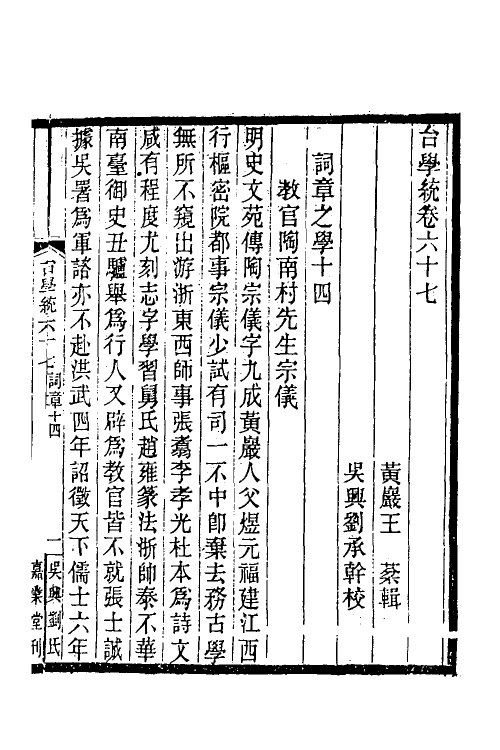 台學統卷六十七
黃巖王　棻輯
吳興劉承幹校
詞章之學十四
教官陶南村先生宗儀
明史文苑傳陶宗儀字九成黃巖人父煜元福建江西
行樞密院都事宗儀少試有司一不中卽棄去務古學
無所不窺出游浙東西師事張翥李孝光杜本爲詩文
咸有程度尤刻志字學習舅氏趙雍篆法浙帥泰不華
南臺御史丑驢舉爲行人又辟爲教官皆不就張士誠
據吳署爲軍諮亦不赴洪武四年詔徵天下儒士六年
台學統六十七　詞章十四
一
吳興劉氏
嘉業堂刊